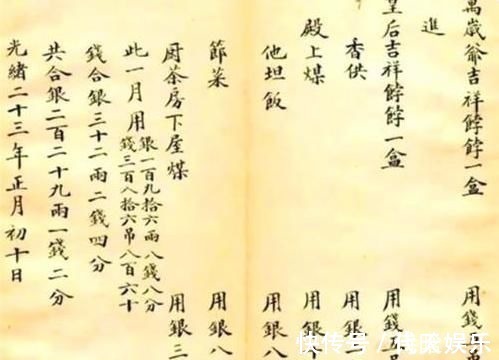 萬歲爺吉祥餑餑一盒 用錢
進
皇后吉祥餑餑一盒 用錢
香供 用銀
殿上煤 用銀八
他坦飯 用銀八
節菜 用銀八
厨茶房下屋煤 用銀三
此一月用銀一百九拾六兩八錢八分
錢三百八拾六吊八百六十
錢合銀三十二兩二錢四分
共合銀二百二十九兩一錢二分
光緒二十三年正月初十日
快傳号
娱乐